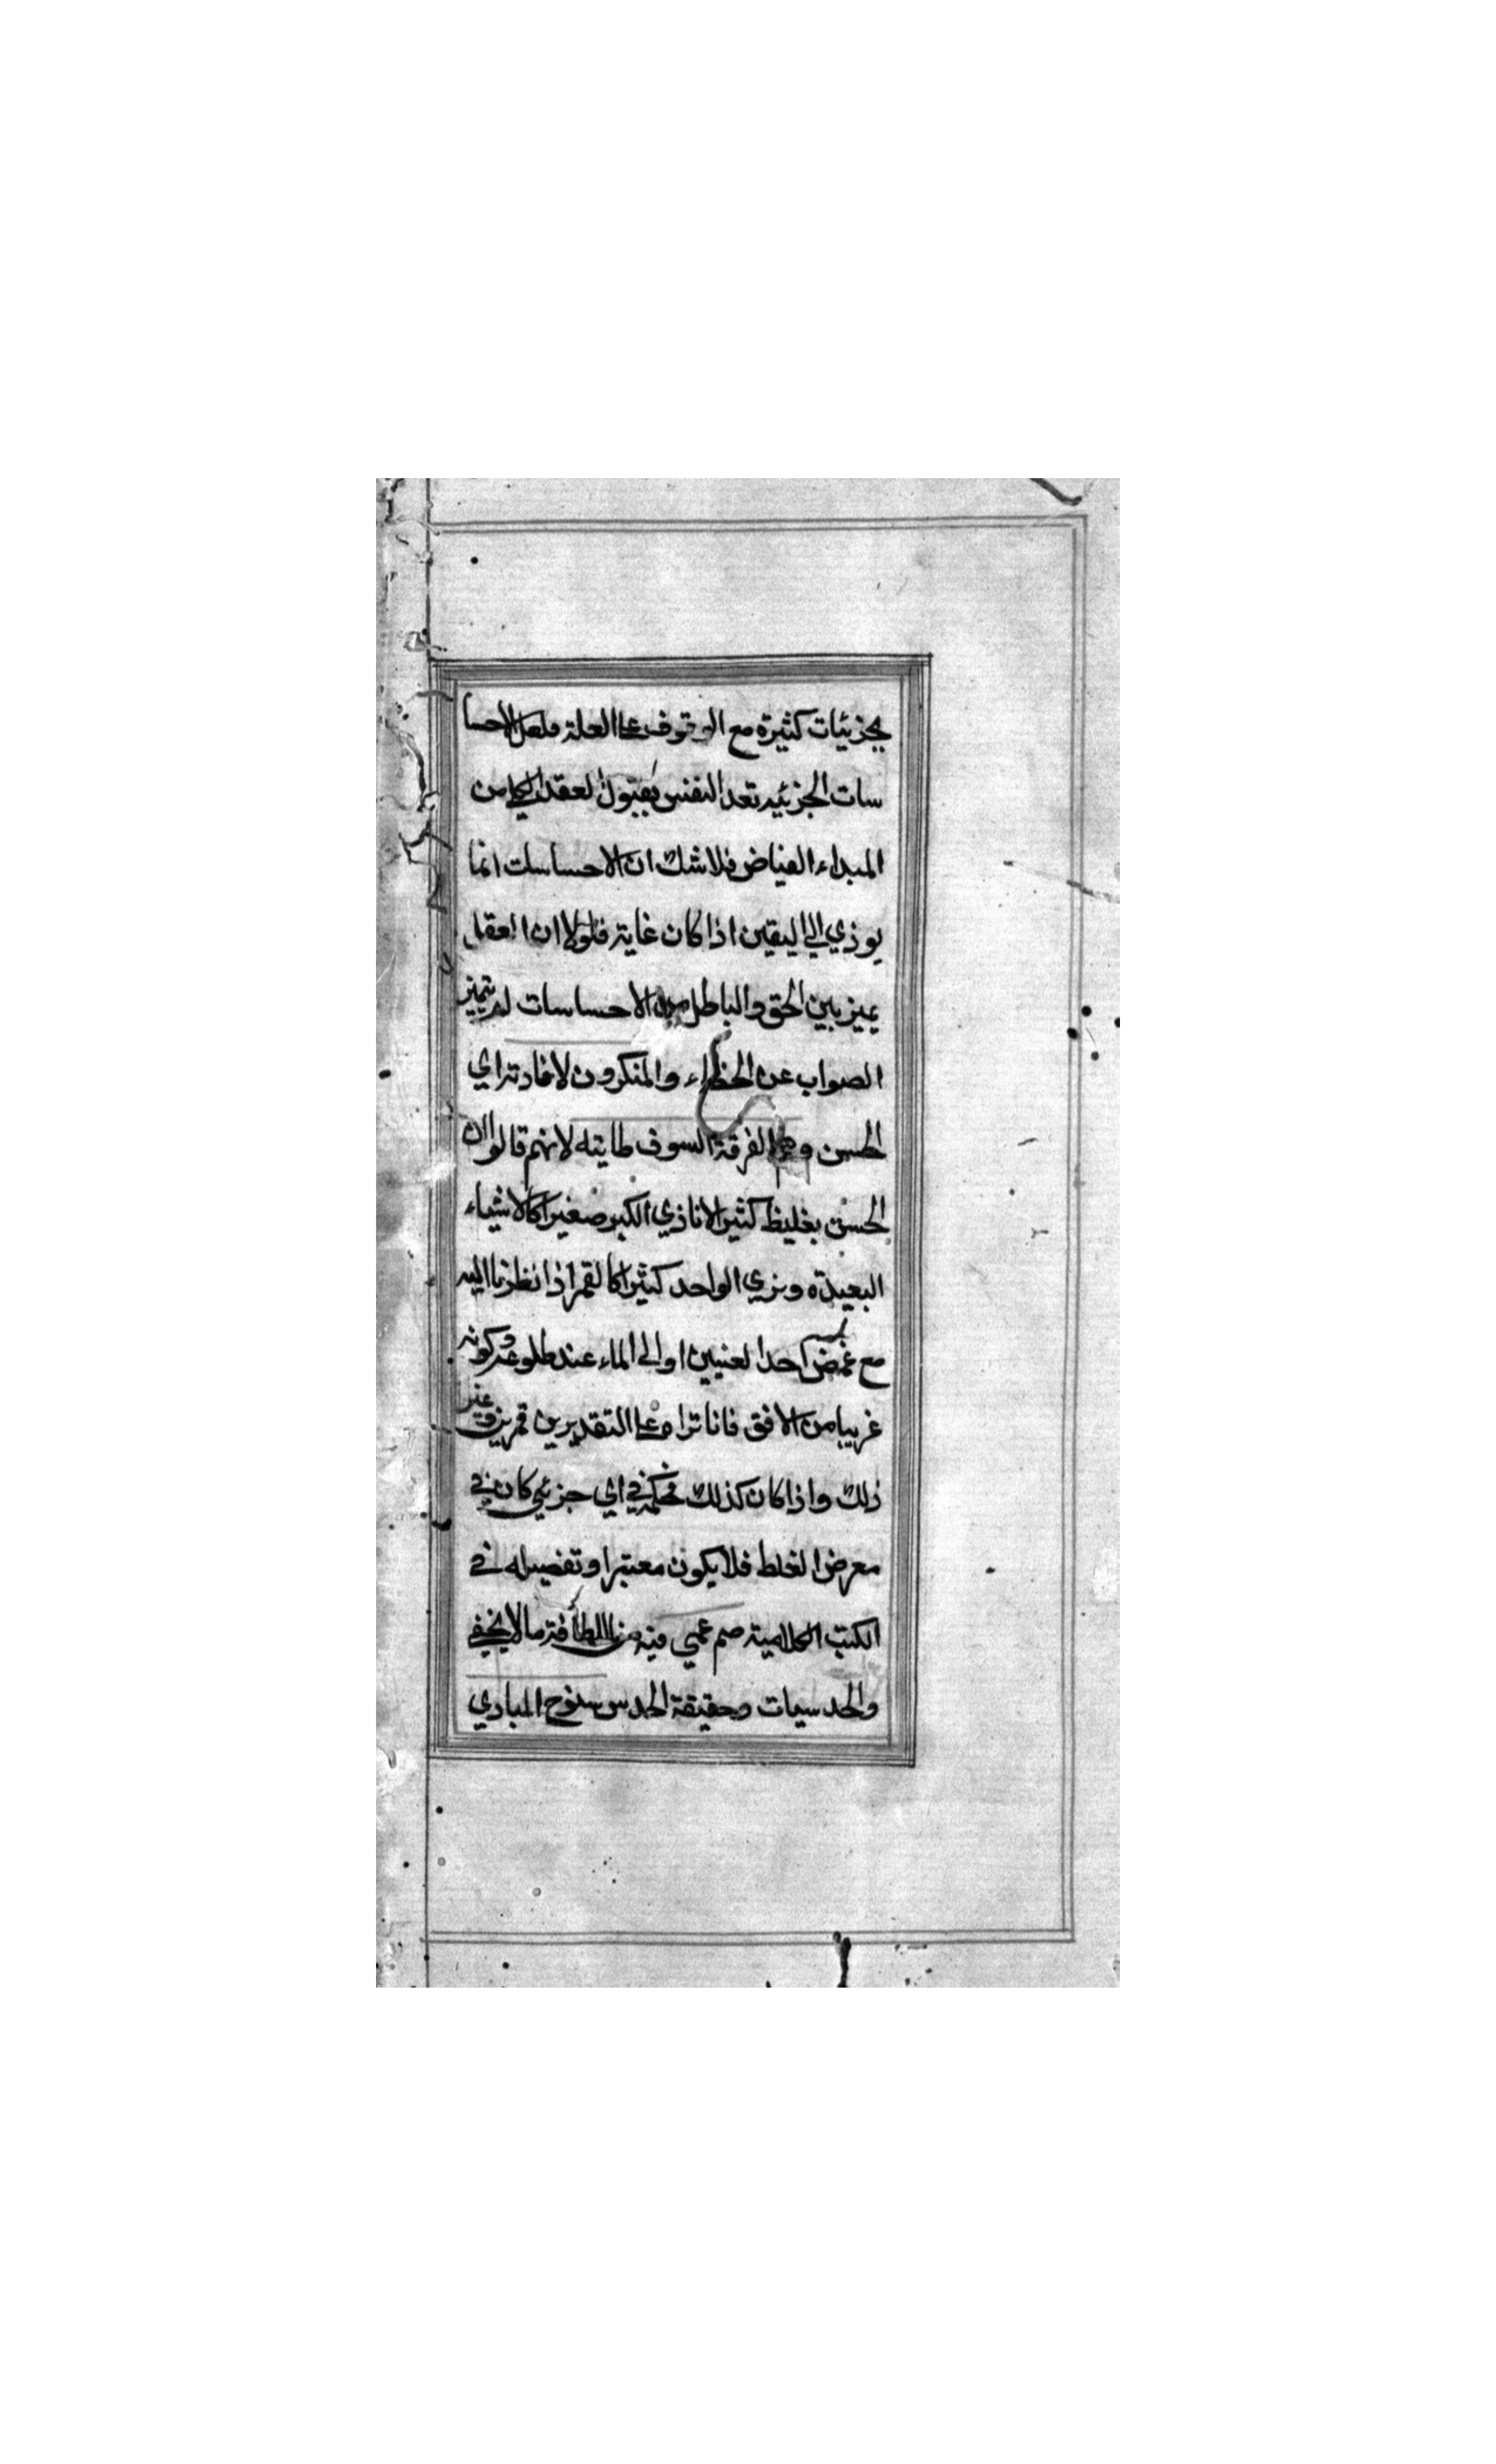 بجزئيات كثيرة مع الوقوف على العلة فلعل الاحسا
سات الجزئيه تعد النفس بقبول لعقد الكلي من
المبداء الفياض فلا شك ان الاحساسات انما
يوذي الي اليقين اذا كان غاية فلولا ان العقل
يميز بين الحق والباطل من الاحساسات لم يتميز
الصواب عن الخطاء والمنكرون لافادته اي
الحسن وهم الفرقة السوف طايته لانهم قالوا ان
الحسن بغليظ كثيرا لانا ذي الكبير صغيرا كالاشياء
البعيدة ونري الواحد كثيرا كالقمر اذا نظرنا اليه
مع غمض احد العنيين او الي الماء عند طلوعه وكونه
غريبا من الافق فانا تراه على التقديرين قمرين وغير
ذلك واذا كان كذلك فحكمه في اي جزئي كان في
معرض الغلط فلا يكون معتبرا وتفصيله في
الكتب الكلامية صم عمي فيه من اللطافة ما لا يخفي
والحدسيات وحقيقة الحدس سنوح المبادي